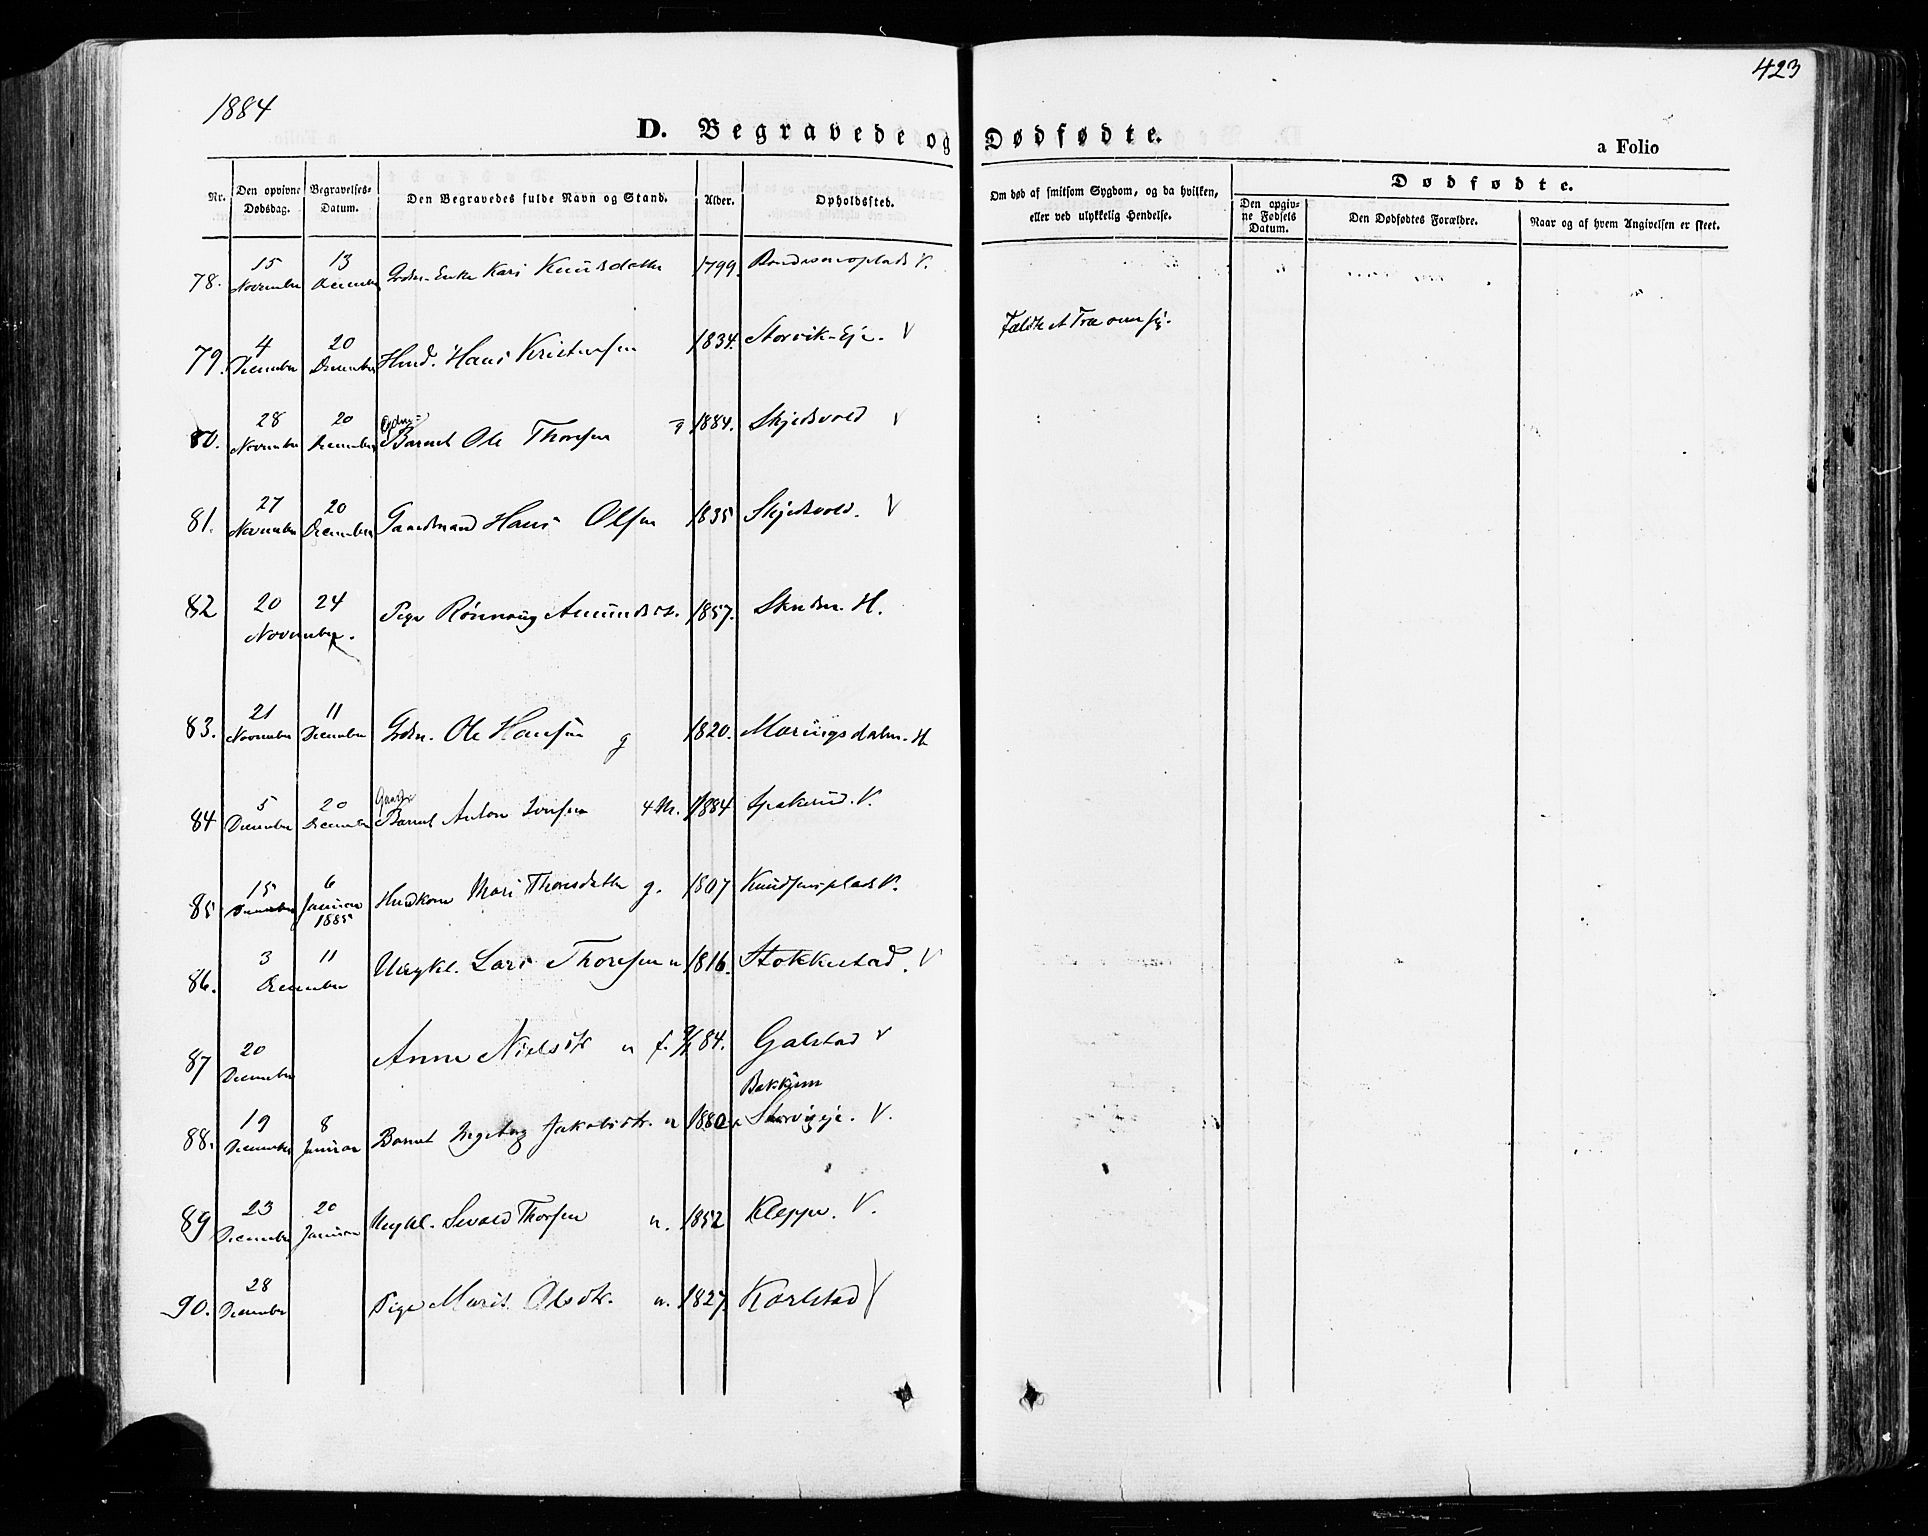 423
1884
D. Begravede og Dødfødte.
a Folio
Nr.
Den opgivne Dødsdag.
Begravelses-Datum.
Den Begravedes fulde Navn og Stand.
Alder.
Opholdssted.
Om død af smitsom Sygdom, og da hvilken, eller ved ulykkelig Hendelse.
Dødfødte.
Den opgivne Fødsels Datum.
Den Dødfødtes Forældre.
Naar og af hvem Angivelsen er skeet.
78. 15 November 13 December Enke Kari Knudsdatter 1799. V.
79. 4 December 20 December Hmd. Hans Kristensen 1834. Storvik-Eje. V Fældte et Træ over sig.
80. 28 November 20 December Barnet Ole Thoresen 1884. Skjedsvold V
81. 27 November 20 December Gaardmand Hans Olsen 1835 Skjedsvold. V
82 20 24 November. Pige Rønnaug Amundsdt. 1857. H.
83. 21 November 11 December Gdm. Ole Hansen g 1820. Moringsdalen. H
84 5 December 20 December Barnet Anton 4 M. 1884 Spakrud. V.
85 15 December 6 Januar 1885 Huskone Mari Thoresdatter g. 1807 Knudsensplads V.
86. 3 11 December Ungkl. Lars Thoresen u 1816. Stokkestad. V
87 20 December Anne Nielsdtr u f. 84. Galstad V
88. 19 December 8 Januar Barnet Ingeborg Jakobsdtr. u 1880 Bakkum Storvigeje. V.
89 23 December 20 Januar Ungkl. Sevald Thorsen u. 1852 Kleppe. V.
90. 28 December Pige Marit Olsdtr. u. 1827. Karlstad V